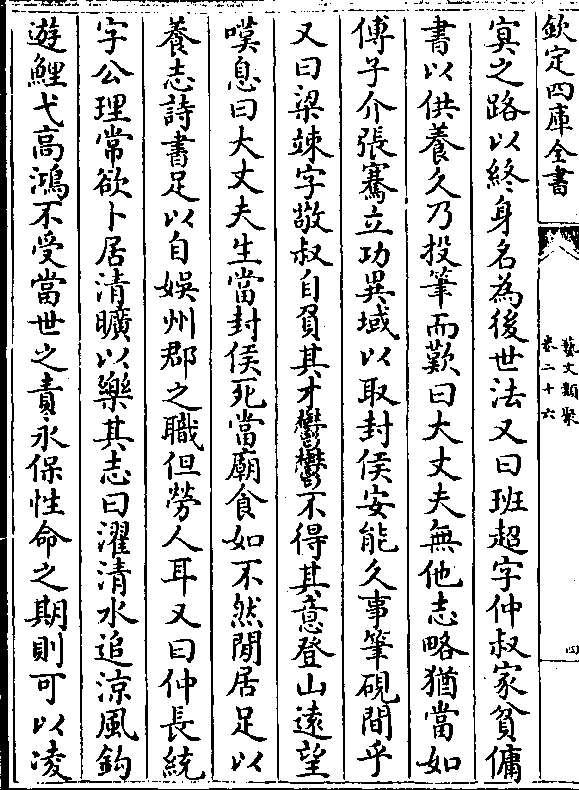 欽定四庫全書
藝文類聚
卷二十六
四
寞之路以終身名為後世法又曰班超字仲叔家貧傭
書以供養久乃投筆而歎曰大丈夫無他志略猶當如
傅子介張騫立功異域以取封侯安能久事筆硯間乎
又曰梁竦字敬叔自負其才鬱鬱不得其意登山遠望
嘆息曰大丈夫生當封侯死當廟食如不然閒居足以
養志詩書足以自娛州郡之職但勞人耳又曰仲長統
字公理常欲卜居清曠以樂其志曰濯清水追涼風釣
遊鯉弋高鴻不受當世之責永保性命之期則可以凌